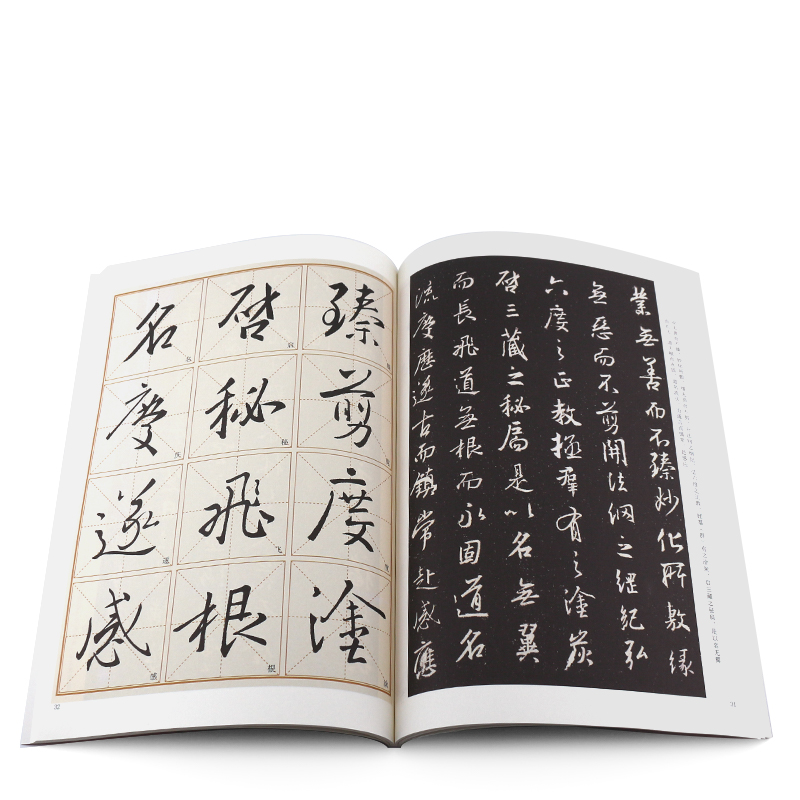 業無善而不臻妙化所敷緣
無惡而不剪開法網之綱紀弘
六度之正教拯群有之塗炭
啓三藏之秘扃是以名無翼
而長飛道無根而永固道名
流慶歷遂古而鎮常赴感應
31
臻
剪
度
塗
啓
启
秘
秘
飛
飞
根
根
名
名
慶
庆
遂
遂
感
感
32